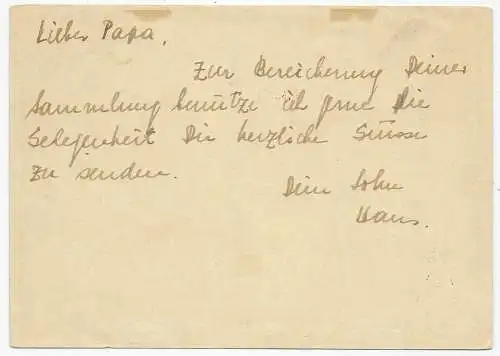 Lieber Papa,
Zur Bereicherung Deiner
Sammlung benutze ich gerne die
Gelegenheit Dir herzliche Grüsse
zu senden.
Dein Sohn
Hans.